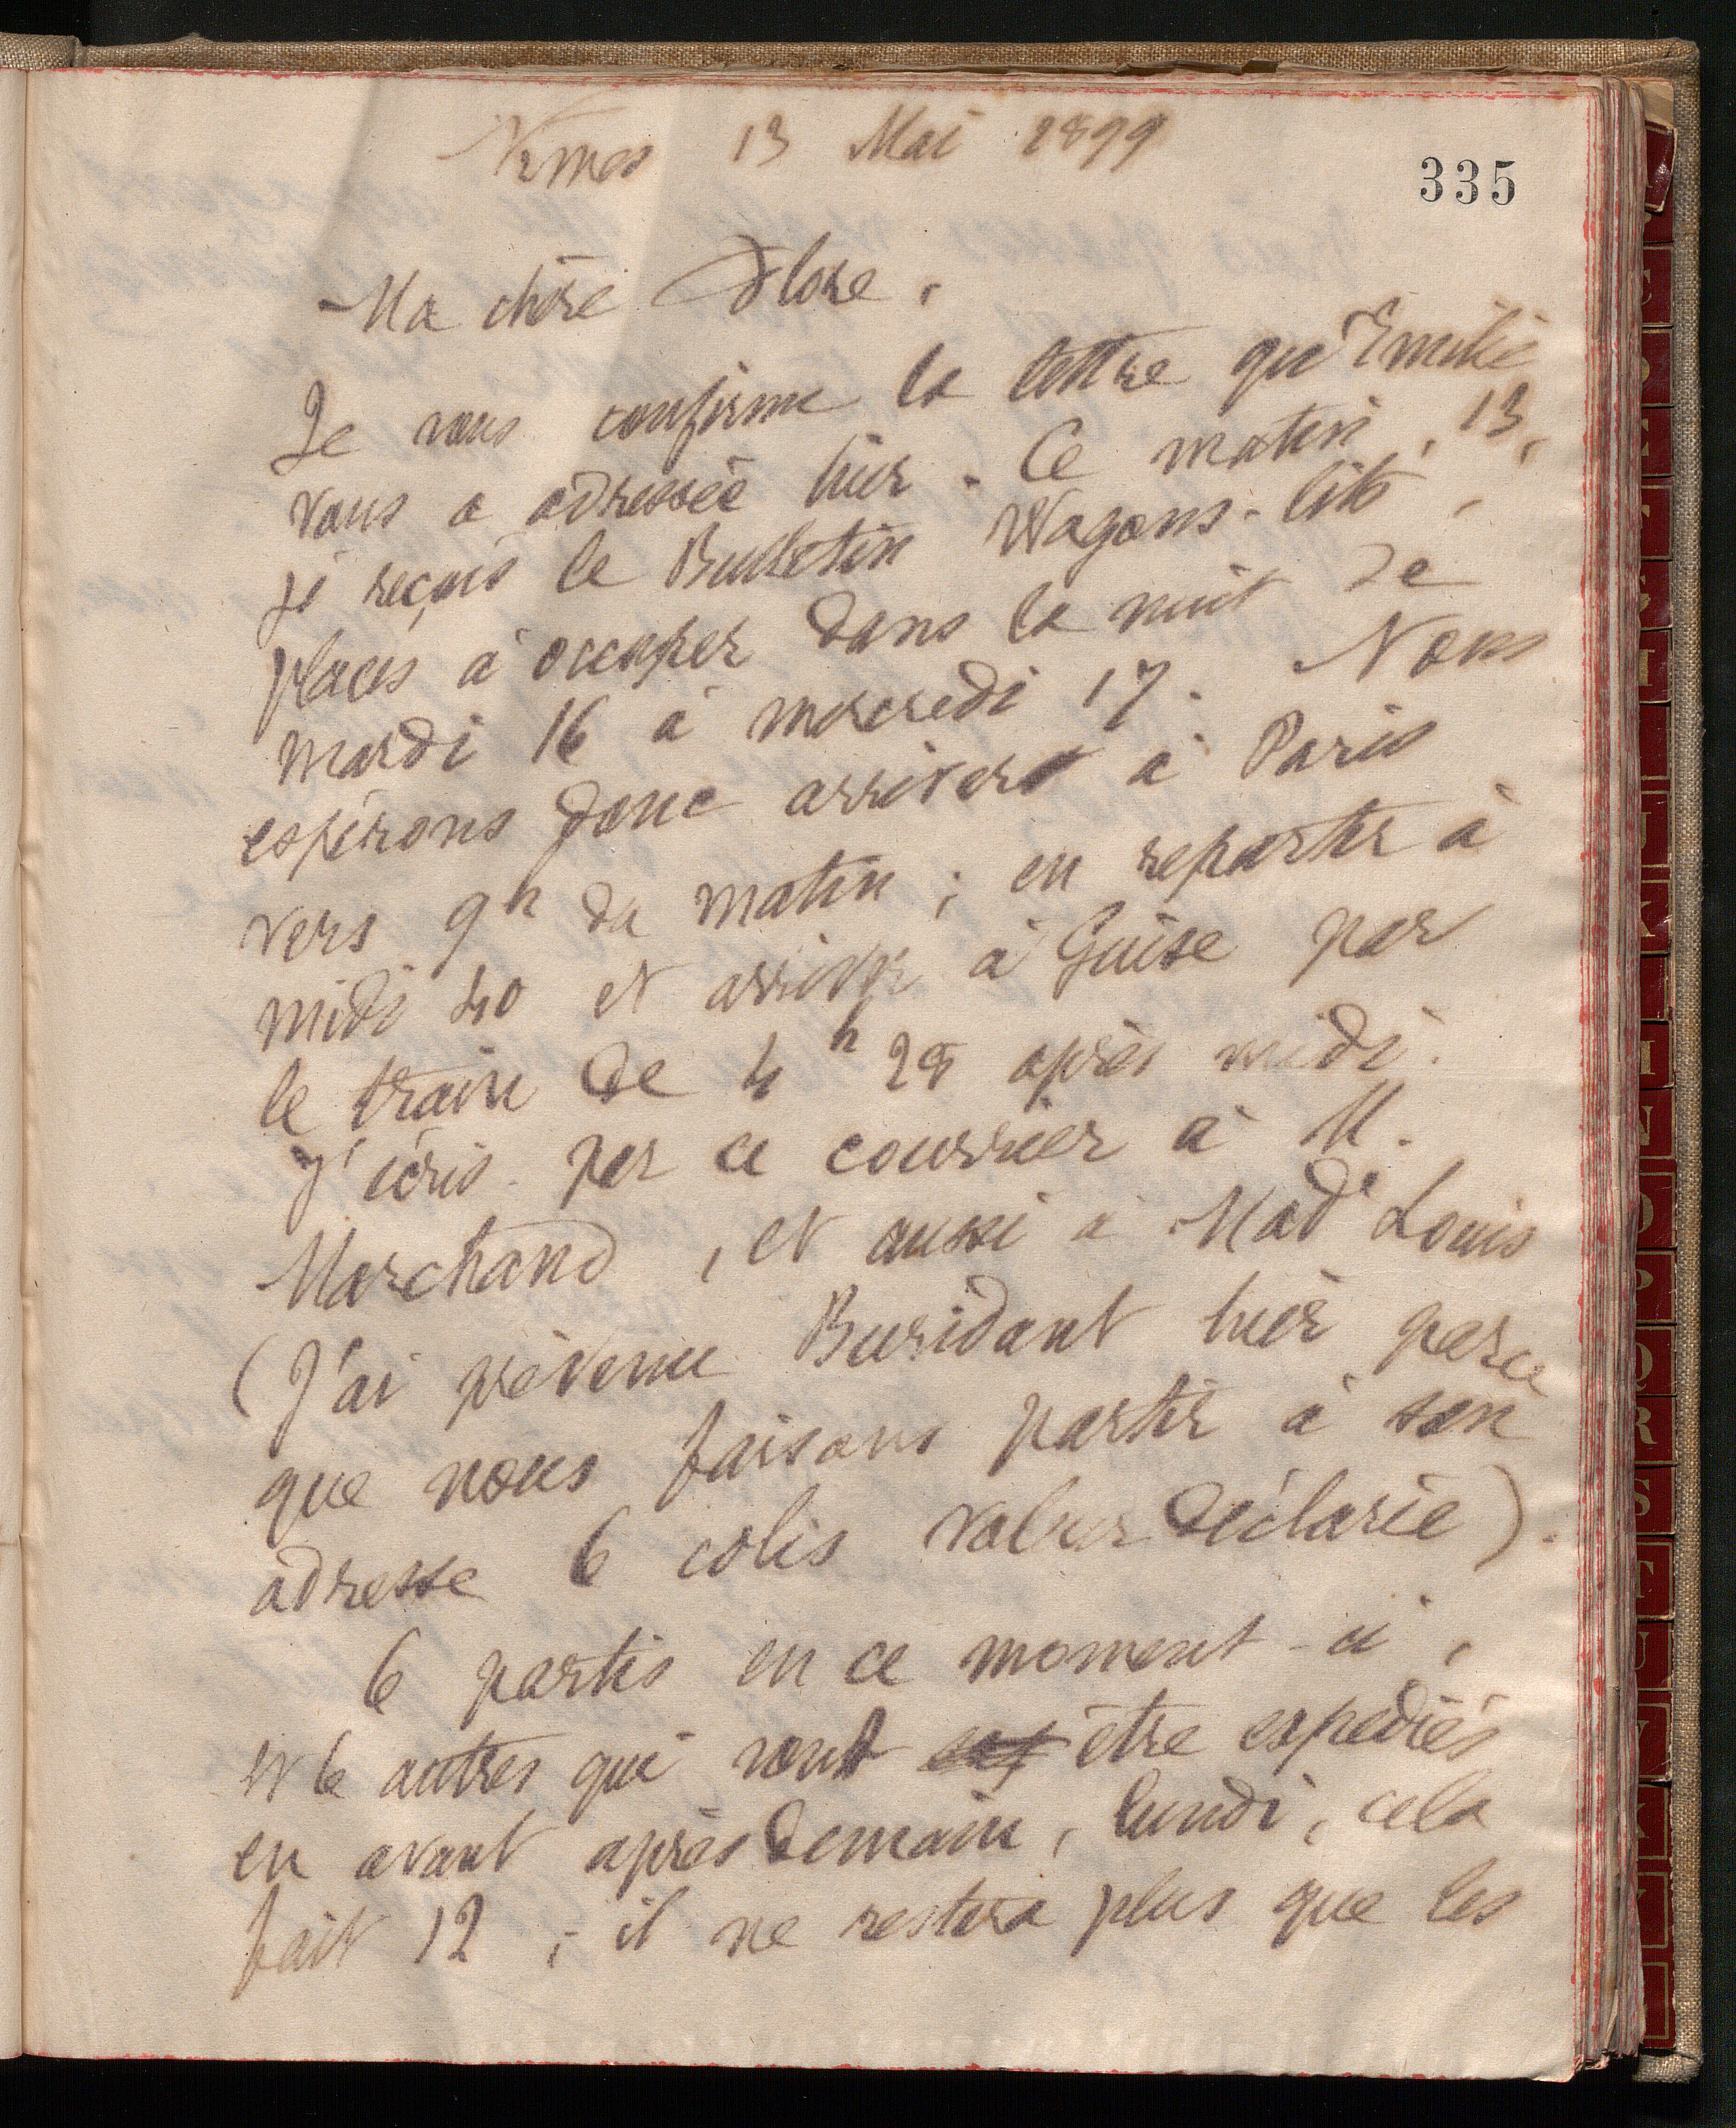 Nîmes 13 Mai 1899
335
Ma chère Flore,
Je vous confirme la lettre qu'Emilie
vous a adressée hier. Ce matin, 13,
je reçois le Bulletin Wagons-lits,
places à occuper dans la nuit de
mardi 16 à mercredi 17. Nous
espérons donc arriver à Paris
vers 9h du matin ; en repartir à
midi 40 et arriver à Guise par
le train de 4h 28 après midi.
J'écris par ce courrier à M.
Marchand, et aussi à Made Louis
(J'ai prévenu Buridant hier parce
que nous faisons partir à son
adresse 6 colis valeur déclarée).
6 partis en ce moment-ci,
et 6 autres qui vont être expédiés
en avant après demain, lundi, cela
fait 12 ; il ne restera plus que les